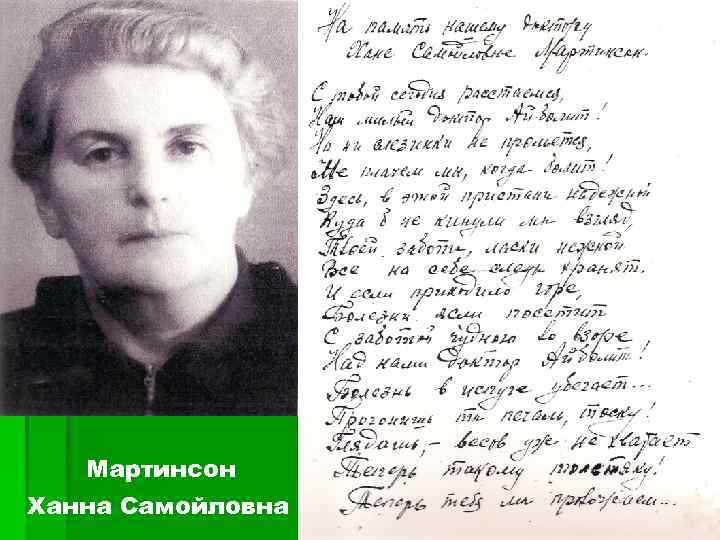 На память нашему доктору
Хане Самойловне Мартинсон.
С тобой сегодня расстаемся,
Наш милый доктор Айболит!
Но ни слезинки не прольется,
Не плачем мы, когда болит!
Здесь, в этой пристани надежной
Куда б не кинули мы взгляд,
Твоей заботы, ласки нежной
Все на себе следы хранят.
И если приходило горе,
Болезни ясли посетит
С заботой чудною во взоре
Над нами доктор Айболит!
Болезнь в испуге убегает...
Прогонишь ты печаль, тоску!
Глядишь, – весов уж не хватает
Теперь такому толстяку!
Теперь тебя мы провожаем...
Мартинсон
Ханна Самойловна